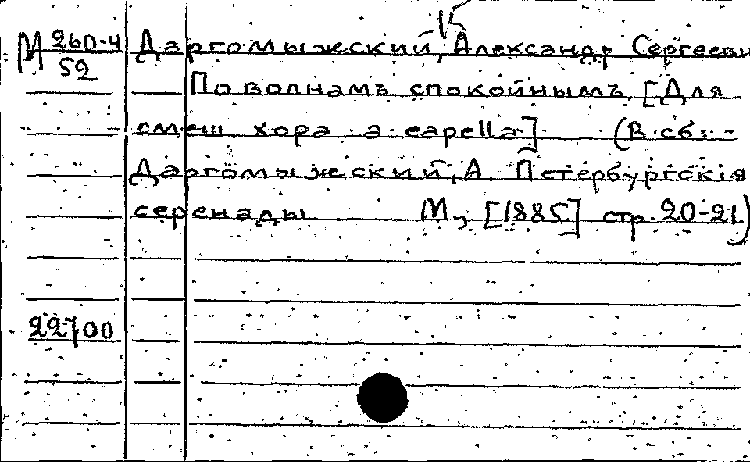 15
М 260-4 Даргомыжский, Александр Сергееви
52
По волнамъ спокойнымъ [Для
смеш хора a capella] (В сб:-
Даргомыжский, А. Петербургскiя
серенады М., [1885] стр. 20-21)
22700